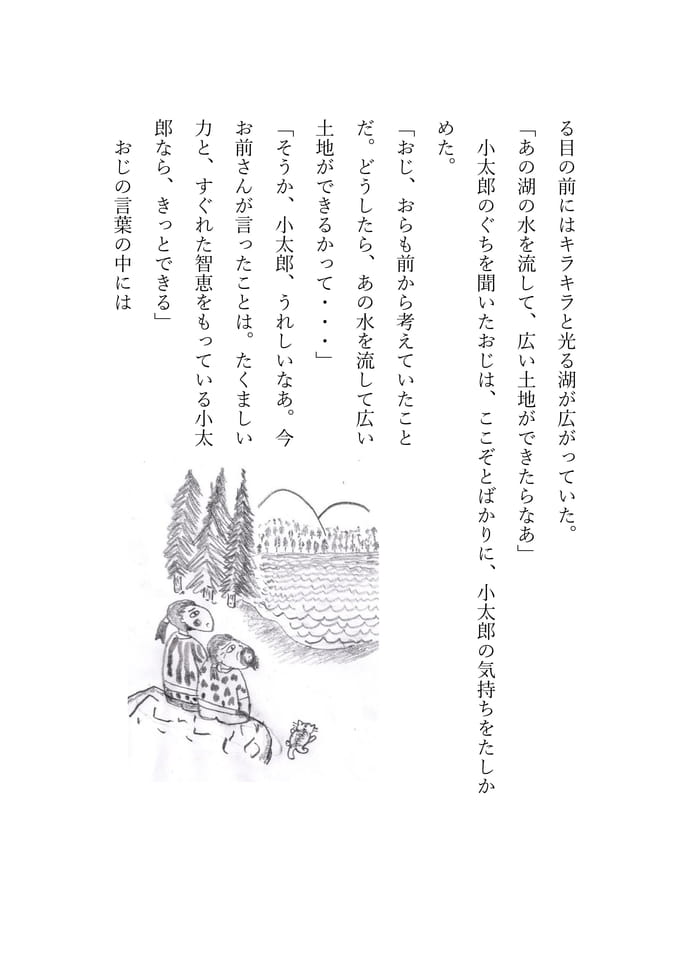 る目の前にはキラキラと光る湖が広がっていた。
「あの湖の水を流して、広い土地ができたらなあ」
　小太郎のぐちを聞いたおじは、ここぞとばかりに、小太郎の気持ちをたしか
めた。
「おじ、おらも前から考えていたこと
だ。どうしたら、あの水を流して広い
土地ができるかって・・・」
「そうか、小太郎、うれしいなあ。今
お前さんが言ったことは。たくましい
力と、すぐれた智恵をもっている小太
郎なら、きっとできる」
　おじの言葉の中には